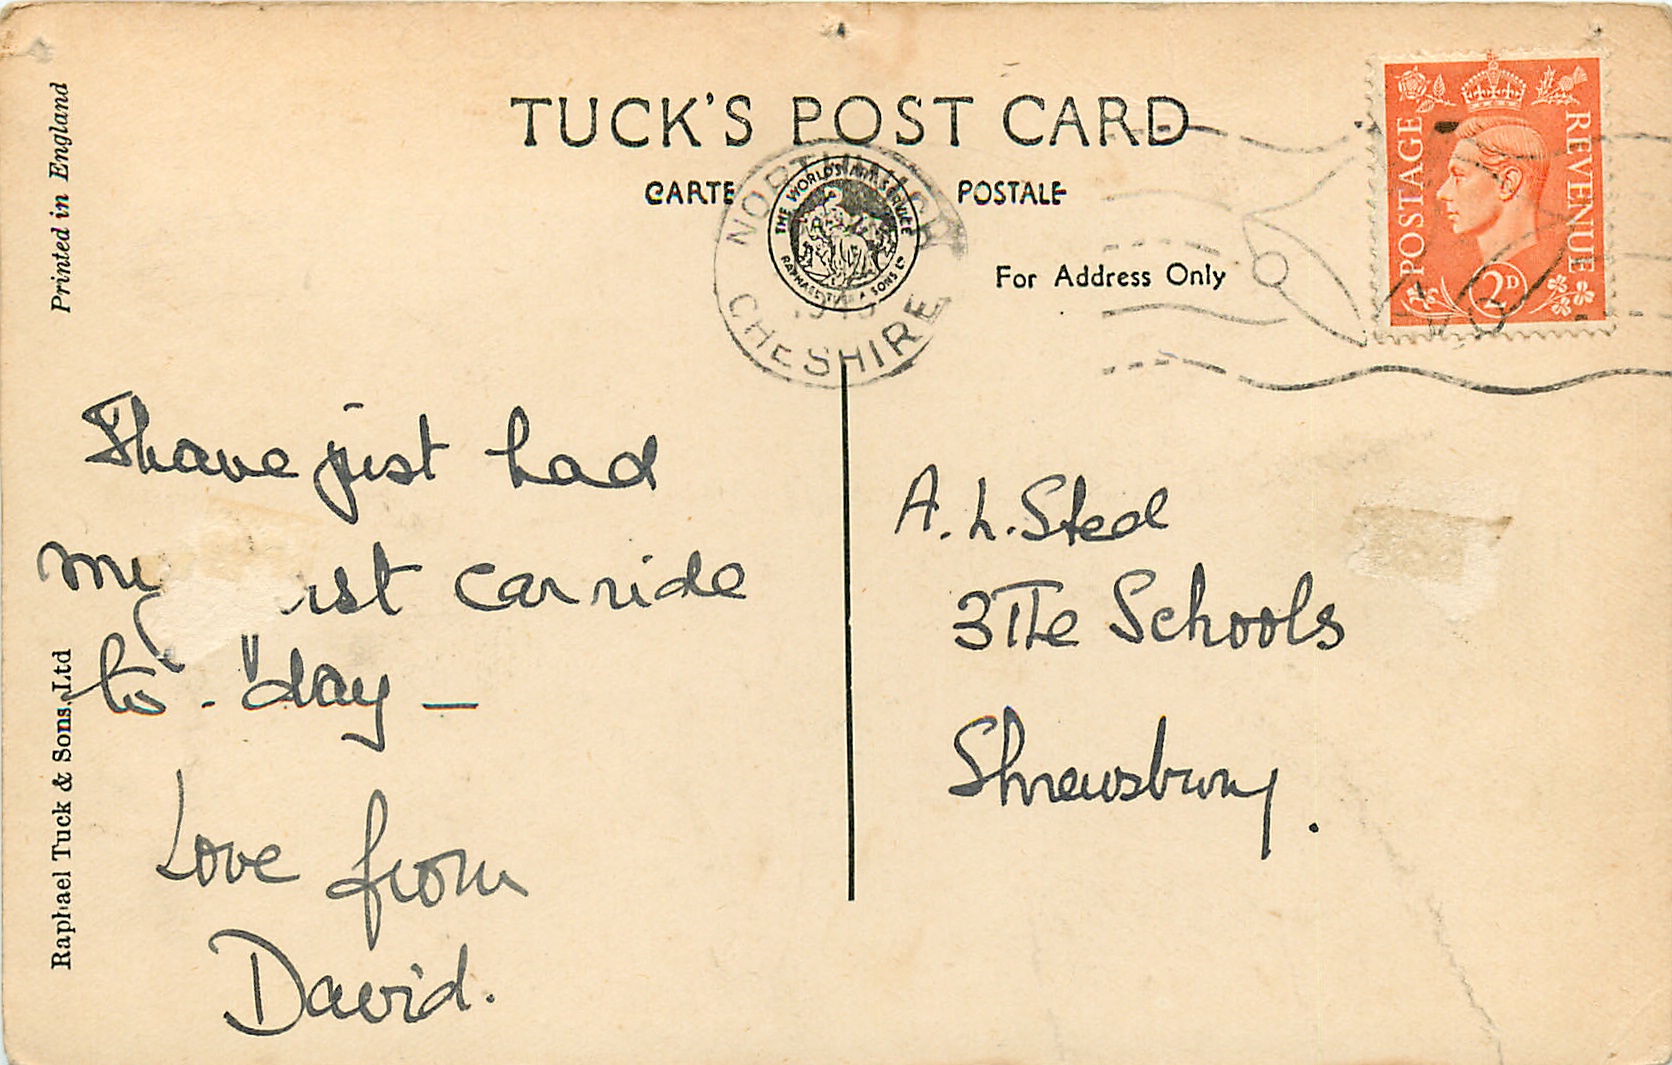 TUCK'S POST CARD
CARTE POSTALE
For Address Only
THE WORLD'S ART SERVICE
RAPHAEL TUCK & SONS LTD
CHESHIRE
POSTAGE REVENUE
2D
Printed in England
Raphael Tuck & Sons, Ltd
I have just had
my rst car ride
to-day —
Love from
David.
A. L. Sted
3 The Schools
Shrewsbury.